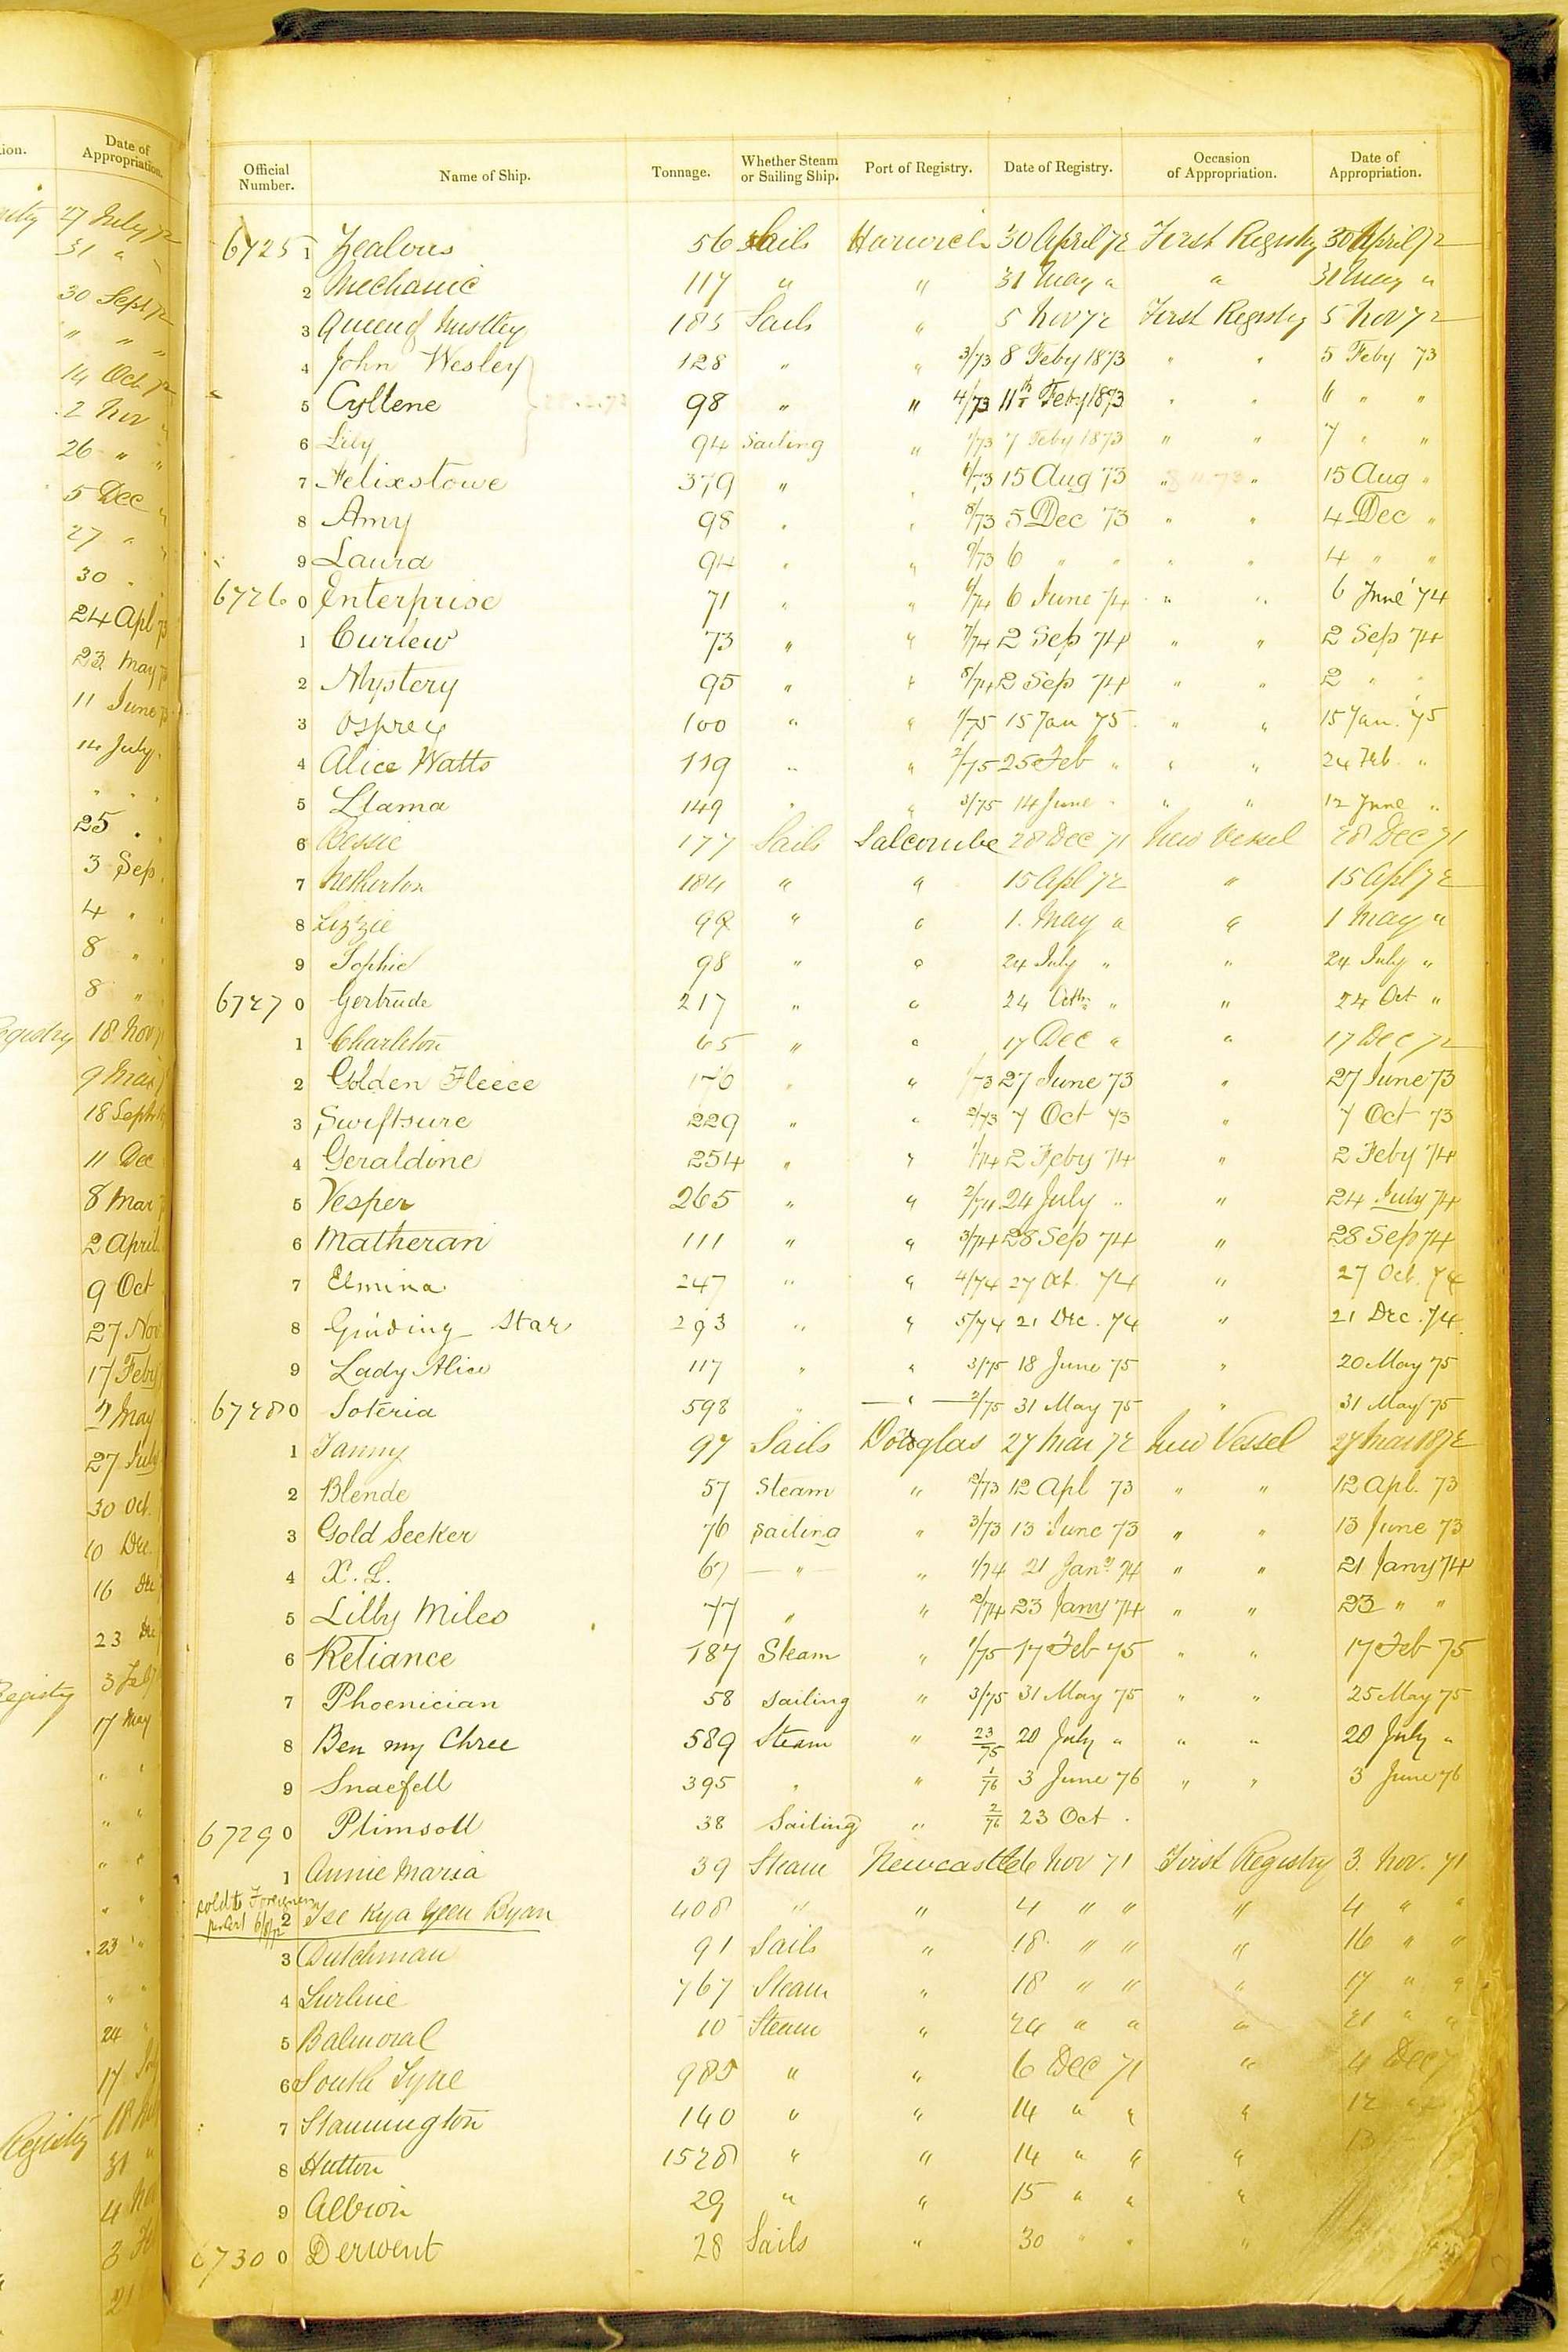 ion.
Date of Appropriation.
27 July 72
31 "
30 Sept 72
" " "
14 Oct 72
2 Nov "
26 " "
5 Dec "
27 " "
30 "
24 Apl 73
23 May 73
11 June
14 July
" "
25 "
3 Sep.
4 "
8 "
8 "
Registry 18 Nov
9 Mar
18 Sept
11 Dec
8 Mar
2 April
9 Oct
27 Nov
17 Feby
7 May
27 July
30 Oct.
10 Dec.
16 Dec
23 Dec
Registry 3 Feby
17 May
" "
" "
" "
" "
23 "
" "
24 "
17
Registry 18
31 "
4
3
21
Official Number. Name of Ship. Tonnage. Whether Steam or Sailing Ship. Port of Registry. Date of Registry. Occasion of Appropriation. Date of Appropriation.
6725 1 Zealous 56 Sails Harwich 30 April 72 First Registry 30 April 72
2 Mechanic 117 " " 31 May " " 31 May "
3 Queen of Mistley 185 Sails " 5 Nov 72 First Registry 5 Nov 72
4 John Wesley 128 " " 3/73 8 Feby 1873 " " 5 Feby 73
5 Cyllene 98 " " 4/73 11th Feby 1873 " " 6 " "
6 Lily 94 Sailing " 1/73 7 Feby 1873 " " 7 " "
7 Felixstowe 379 " " 6/73 15 Aug 73 " " 15 Aug "
8 Amy 98 " " 8/73 5 Dec 73 " " 4 Dec "
9 Laura 94 " " 9/73 6 " " " " 4 " "
6726 0 Enterprise 71 " " 6/74 6 June 74 " " 6 June 74
1 Curlew 73 " " 7/74 2 Sep 74 " " 2 Sep 74
2 Mystery 95 " " 8/74 2 Sep 74 " " 2 " "
3 Osprey 100 " " 1/75 15 Jan 75 " " 15 Jan. 75
4 Alice Watts 119 " " 2/75 25 Feb " " " 24 Feb. "
5 Llama 149 " " 3/75 14 June " " " 12 June "
6 Bessie 177 Sails Salcombe 28 Dec 71 New Vessel 28 Dec 71
7 Netherton 184 " " 15 Apl 72 " 15 Apl 72
8 Lizzie 99 " " 1. May " " 1 May "
9 Sophie 98 " " 24 July " " 24 July "
6727 0 Gertrude 217 " " 24 Octr " " 24 Oct "
1 Charleton 65 " " 17 Dec " " 17 Dec 72
2 Golden Fleece 170 " " 1/73 27 June 73 " 27 June 73
3 Swiftsure 229 " " 2/73 7 Oct 73 " 7 Oct 73
4 Geraldine 254 " " 1/74 2 Feby 74 " 2 Feby 74
5 Vesper 265 " " 2/74 24 July " " 24 July 74
6 Matheran 111 " " 3/74 28 Sep 74 " 28 Sep 74
7 Elmina 247 " " 4/74 27 Oct. 74 " 27 Oct. 74
8 Guiding Star 293 " " 5/74 21 Dec. 74 " 21 Dec. 74
9 Lady Alice 117 " " 3/75 18 June 75 " 20 May 75
6728 0 Soteria 598 " " 2/75 31 May 75 " 31 May 75
1 Fanny 97 Sails Douglas 27 Mar 72 New Vessel 27 Mar 1872
2 Blende 57 Steam " 2/73 12 Apl 73 " " 12 Apl. 73
3 Gold Seeker 76 Sailing " 3/73 13 June 73 " " 13 June 73
4 X. L. 67 " " 1/74 21 Jany 74 " " 21 Jany 74
5 Lilly Miles 77 " " 2/74 23 Jany 74 " " 23 " "
6 Reliance 187 Steam " 1/75 17 Feb 75 " " 17 Feb 75
7 Phoenician 58 Sailing " 3/75 31 May 75 " " 25 May 75
8 Ben my Chree 589 Steam " 23/75 20 July " " " 20 July "
9 Snaefell 395 " " 1/76 3 June 76 " " 3 June 76
6729 0 Plimsoll 38 Sailing " 2/76 23 Oct.
1 Annie Maria 39 Steam Newcastle 6 Nov 71 First Registry 3. Nov. 71
Sold to Foreigners
2 Tse Kya Yeen Byan 408 " " 4 " " " 4 " "
3 Dutchman 91 Sails " 18 " " " 16 " "
4 Lurline 767 Steam " 18 " " " 17 " "
5 Balmoral 10 Steam " 24 " " " 21 " "
6 South Tyne 985 " " 6 Dec 71 " 4 Dec 7
7 Stannington 140 " " 14 " " " 12
8 Hutton 1528 " " 14 " " " 13
9 Albion 29 " " 15 " " "
6730 0 Derwent 28 Sails " 30 " " "